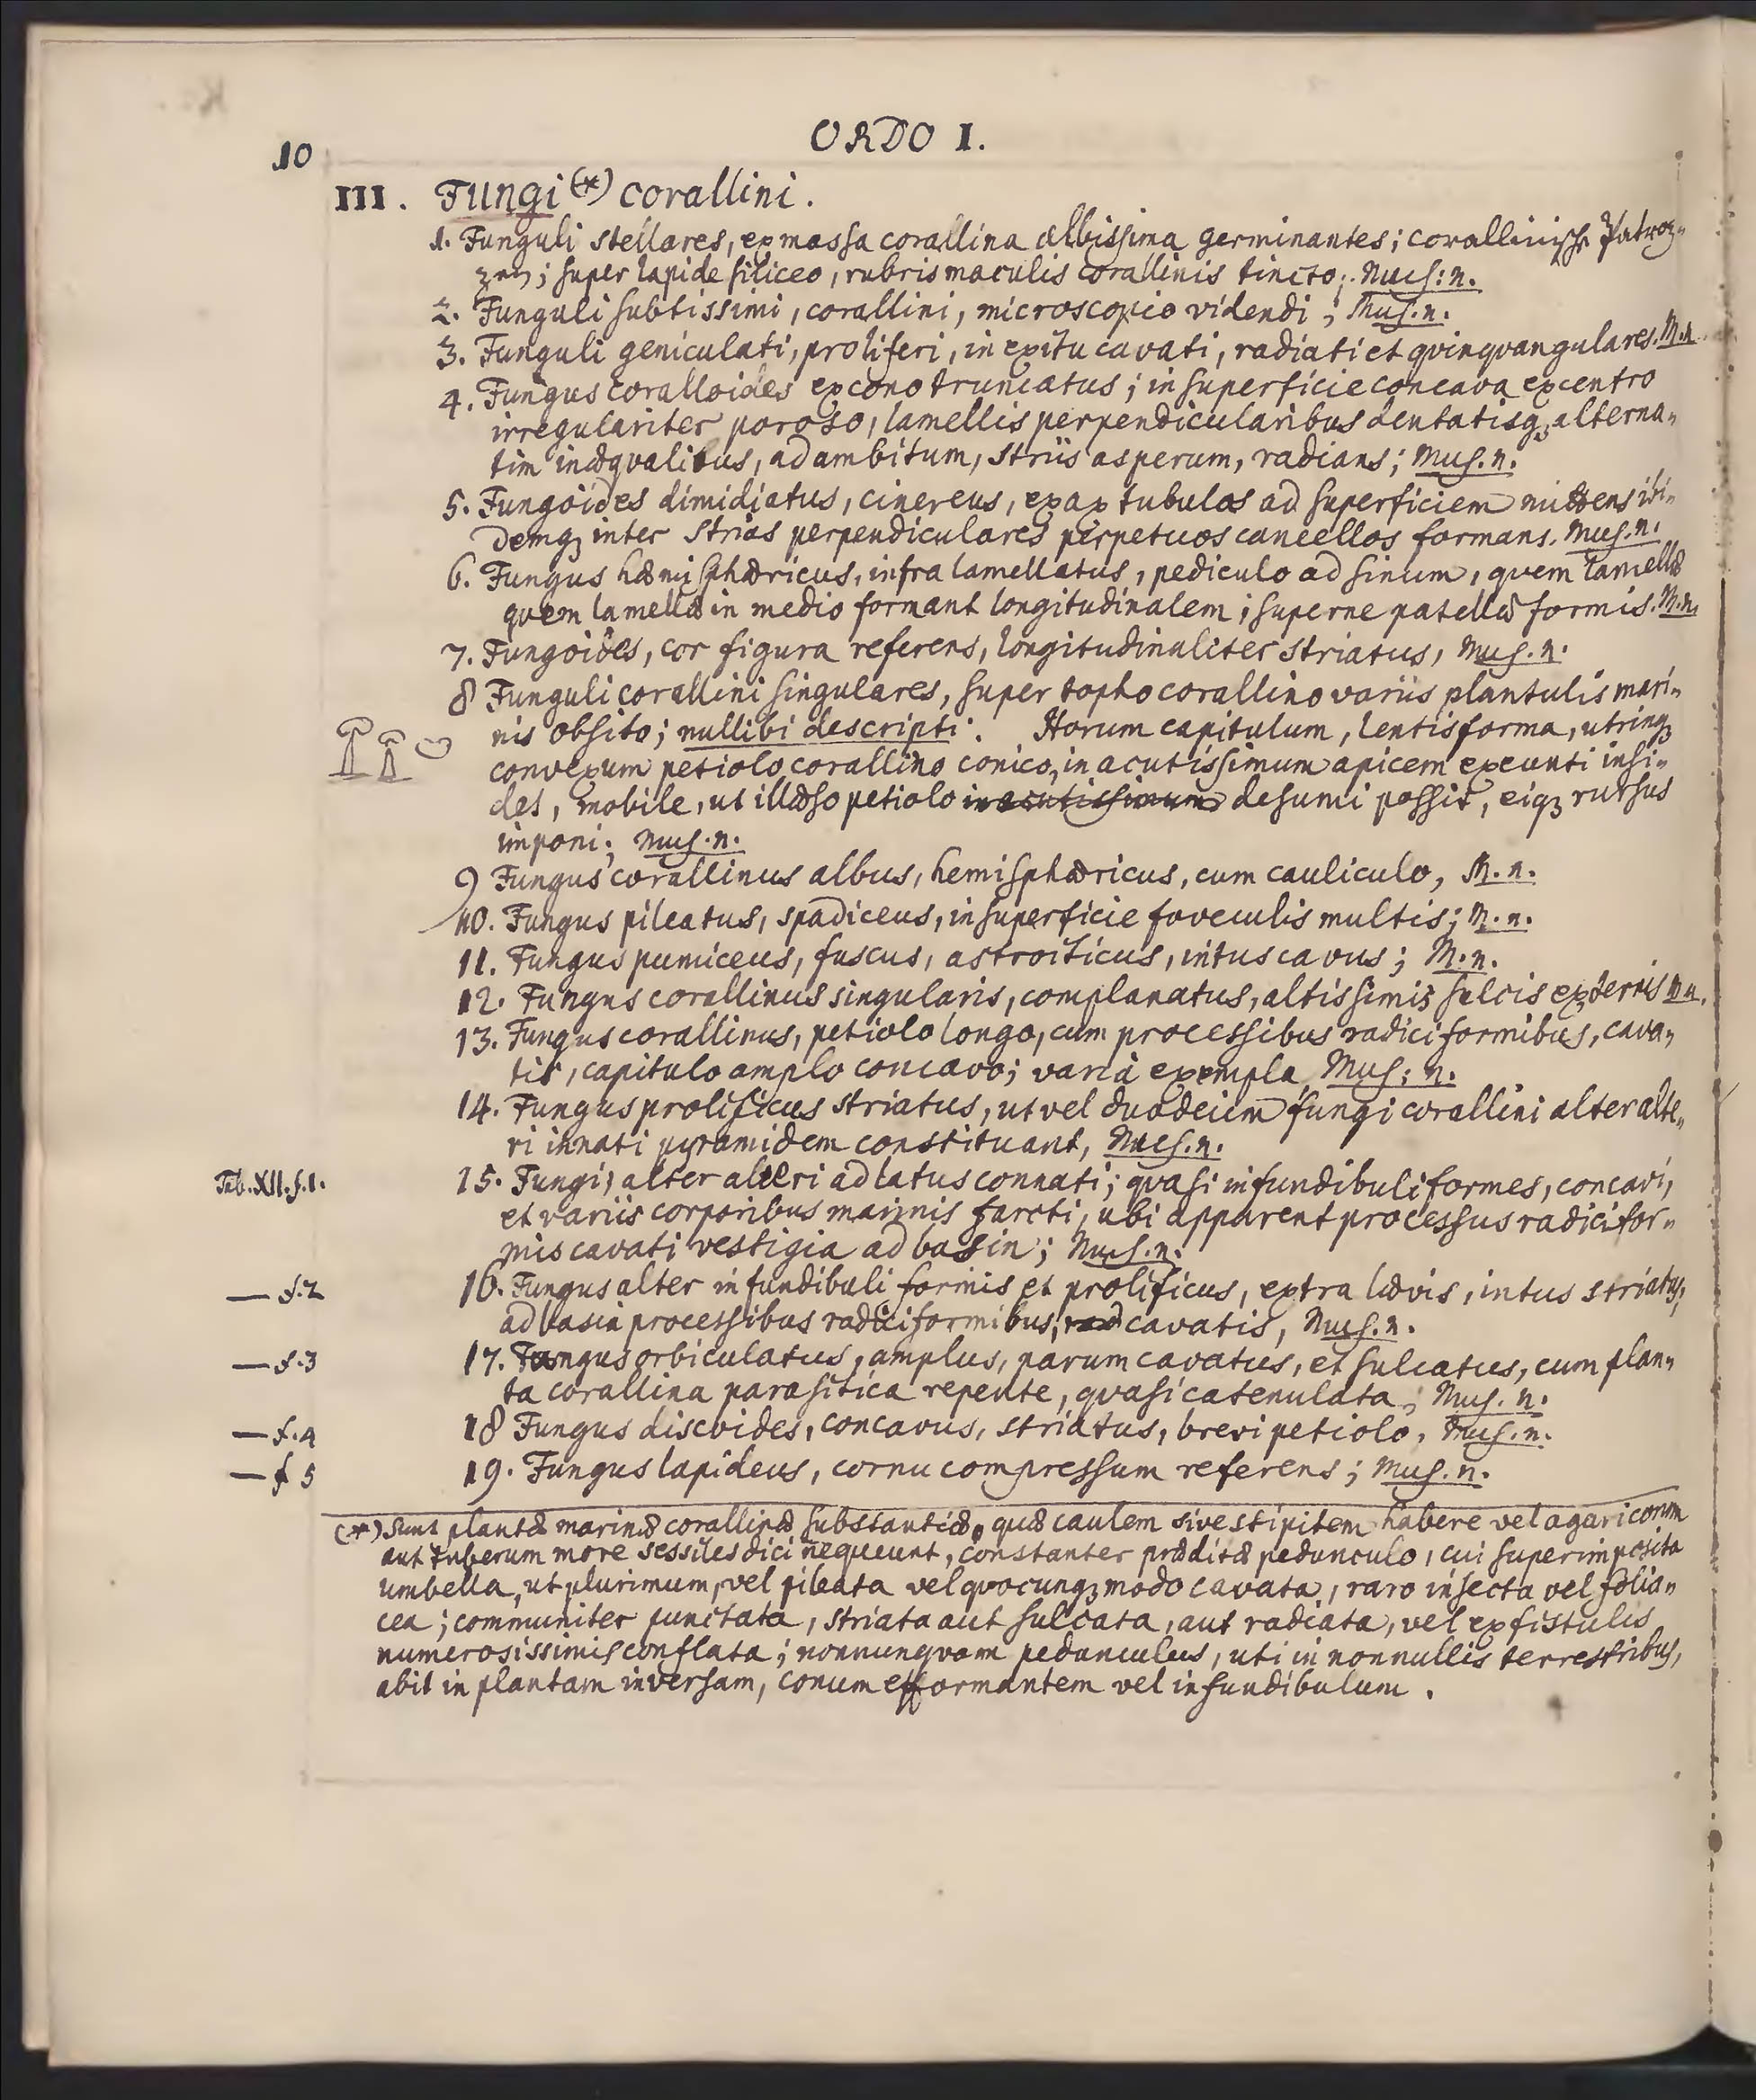 10
ORDO I.
III. Fungi (*) corallini.
1. Funguli stellares, ex massa corallina albissima germinantes; corallinische Patron-
zen; super lapide siliceo, rubris maculis corallinis tincto; Mus: n.
2. Funguli subtissimi, corallini, microscopio videndi; Mus. n.
3. Funguli geniculati, proliferi, in exitu cavati, radiati et qvinqvangulares. M. n.
4. Fungus coralloides ex cono truncatus; in superficie concava ex centro
irregulariter poroso, lamellis perpendicularibus dentatisq, alterna-
tim inæqvalibus, ad ambitum, striis asperum, radians; Mus. n.
5. Fungoides dimidiatus, cinereus, ex ax tubulos ad superficiem mittens ibi-
demq inter strias perpendiculares perpetuos cancellos formans. Mus. n.
6. Fungus hæmisphæricus, infra lamellatus, pediculo ad sinum, qvem lamellæ
qvem lamellæ in medio formant longitudinalem; superne patellæ formis. M. n.
7. Fungoides, cor figura referens, longitudinaliter striatus, Mus. n.
8 Funguli corallini singulares, super topho corallino variis plantulis mari-
nis obsito; nullibi descripti. Horum capitulum, lentis forma, utrinq
convexum petiolo corallino conico, in acutissimum apicem exeunti insi-
det, mobile, ut illæso petiolo in acutissimum desumi possit, eiq rursus
imponi; Mus. n.
9 Fungus corallinus albus, hemisphæricus, cum cauliculo, M. n.
10. Fungus pileatus, spadiceus, in superficie foveculis multis; M. n.
11. Fungus pumiceus, fuscus, astroiticus, intus cavus; M. n.
12. Fungus corallinus singularis, complanatus, altissimis sulcis externis M. n.
13. Fungus corallinus, petiolo longo, cum processibus radiciformibus, cava-
tis, capitulo amplo concavo; varia exempla Mus: n.
14. Fungus prolificus striatus, ut vel duodecim fungi corallini alter alte-
ri innati pyramidem constituant, Mus. n.
Tab. XII. f. 1.
15. Fungi, alter alteri ad latus connati; qvasi infundibuliformes, concavi,
et variis corporibus marinis farcti, ubi apparent processus radicifor-
mis cavati vestigia ad basin; Mus. n.
— f. 2
16. Fungus alter infundibuli formis et prolificus, extra lævis, intus striatus,
ad basin processibus radiciformibus, rad cavatis, Mus. n.
— f. 3
17. Fungus orbiculatus, amplus, parum cavatus, et sulcatus, cum plan-
ta corallina parasitica repente, qvasi catenulata; Mus. n.
— f. 4
18 Fungus discoides, concavus, striatus, brevi petiolo, Mus. n.
— f 5
19. Fungus lapideus, cornu compressum referens; Mus. n.
(*) Sunt plantæ marinæ corallinæ substantiæ, quæ caulem sive stipitem habere vel agaricorum
aut tuberum more sessiles dici nequeunt, constanter præditæ pedunculo, cui superimposita
umbella, ut plurimum, vel pileata vel qvocunq modo cavata, raro insecta vel folia-
cea; communiter punctata, striata aut sulcata, aut radiata, vel ex fistulis
numerosissimis conflata; nonnunqvam pedunculus, uti in nonnullis terrestribus,
abit in plantam inversam, conum efformantem vel infundibulum.